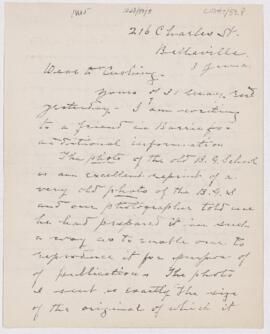 216 Charles St.
Belleville.
Dear Mr
yours of
yesterday. I am writing
to a friend in Barrie for
additional information
The photo of the old B. G. School
is an excellent reprint of a
very old photo of the B. G. S
and our photographer told me
he had prepared it in such
a way as to enable one to
reproduce it for purpose of
of publications The photo
I sent is exactly the size
of the original of which it